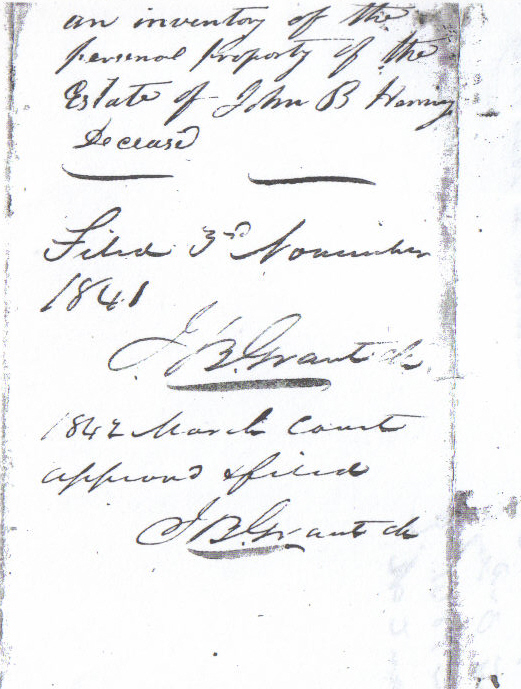 an inventory of the
personal property of the
Estate of John B
Deceased
Filed 3rd November
1841
J. B. Grant ck
1842 March Court
approvd & filed
J B. Grant ck